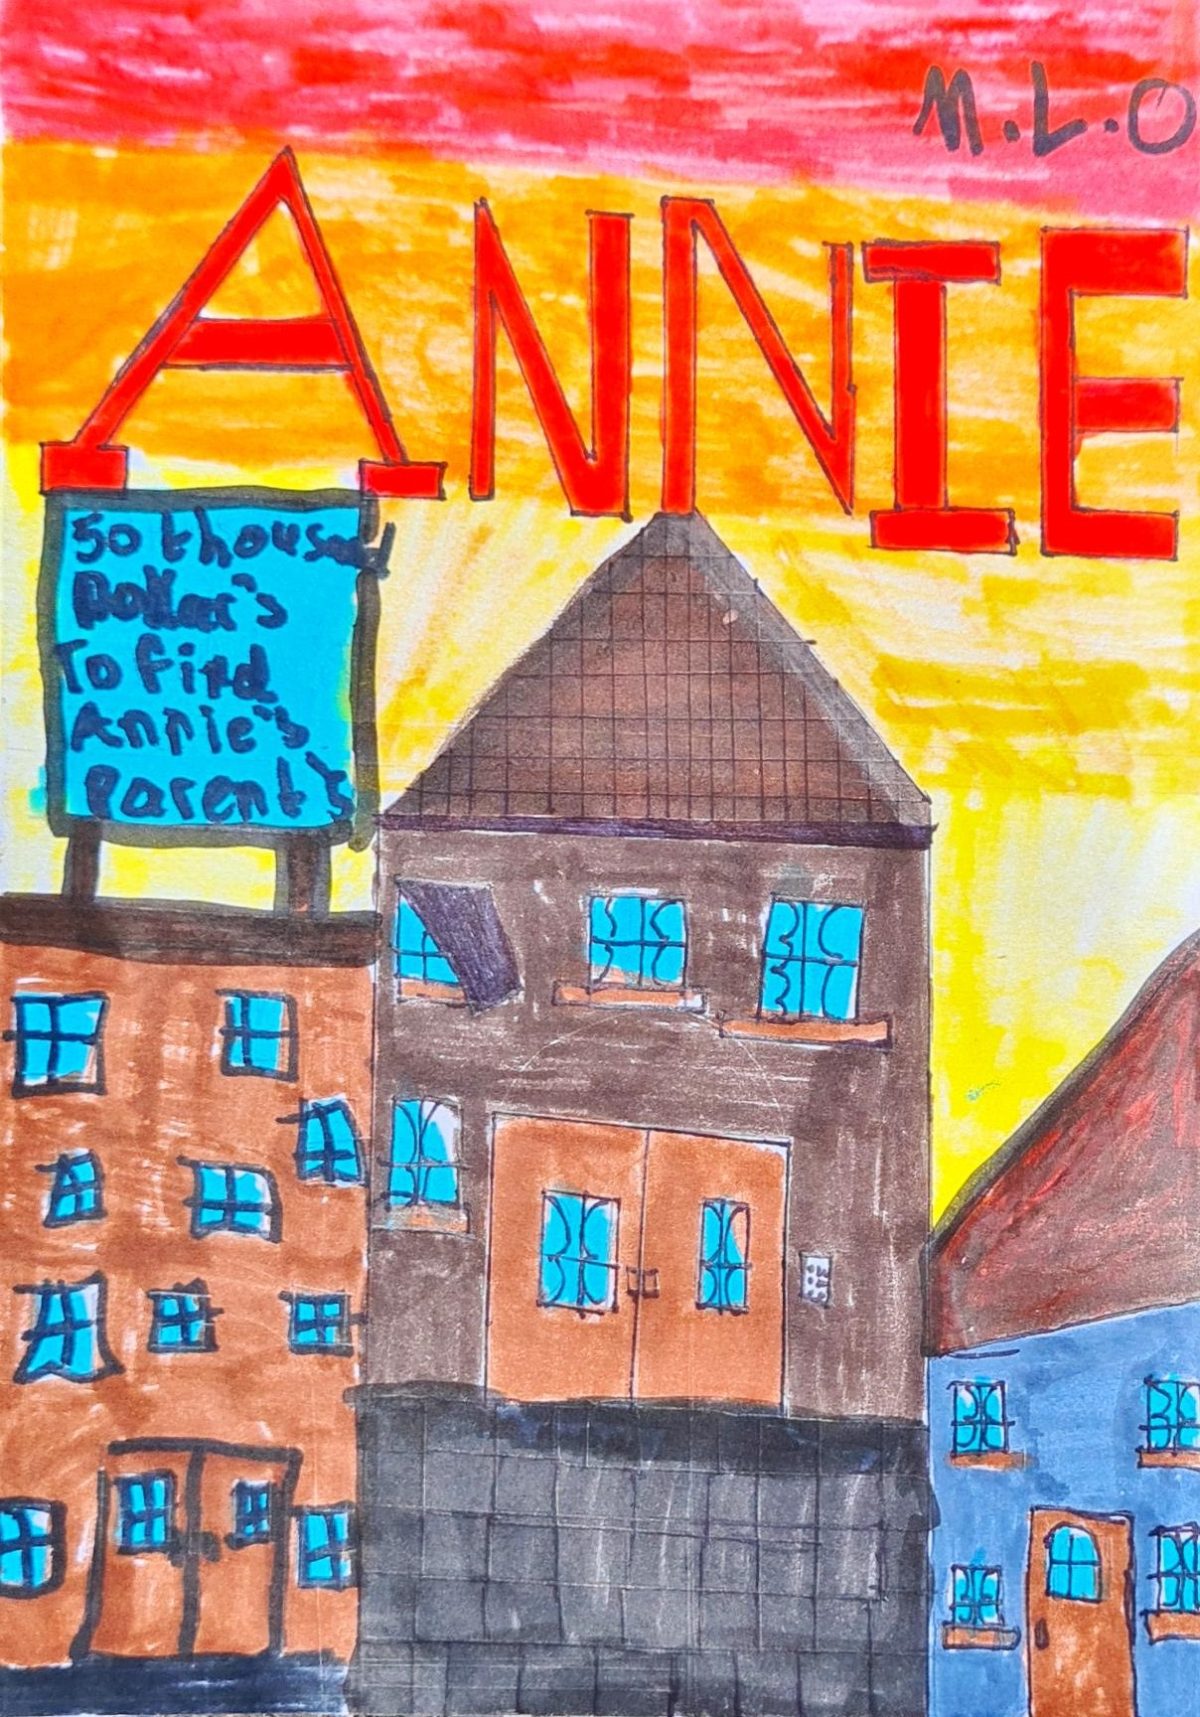 M.L.O
ANNIE
50 thousand
Dollar's
To find
Annie's
parent's